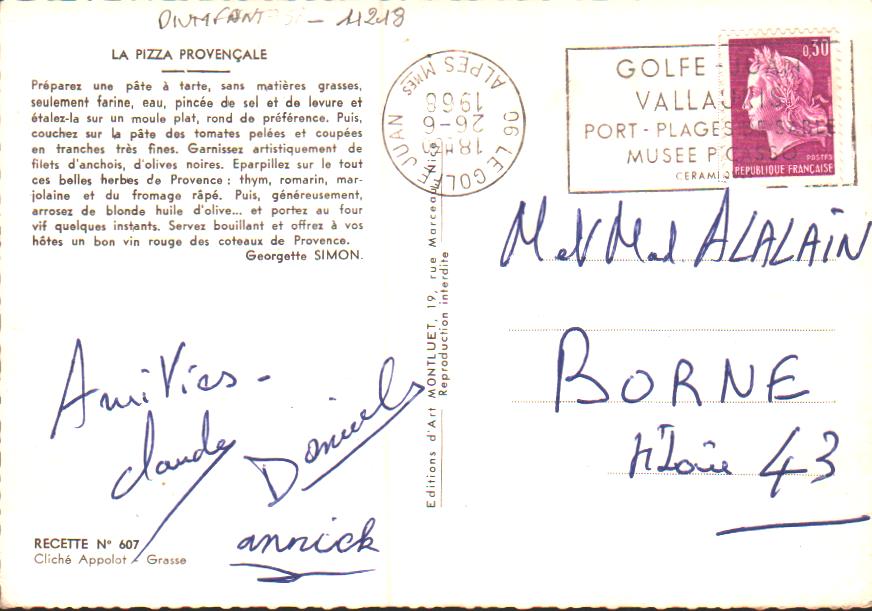 11218
LA PIZZA PROVENÇALE
Préparez une pâte à tarte, sans matières grasses,
seulement farine, eau, pincée de sel et de levure et
étalez-la sur un moule plat, rond de préférence. Puis,
couchez sur la pâte des tomates pelées et coupées
en tranches très fines. Garnissez artistiquement de
filets d'anchois, d'olives noires. Eparpillez sur le tout
ces belles herbes de Provence : thym, romarin, mar-
jolaine et du fromage râpé. Puis, généreusement,
arrosez de blonde huile d'olive... et portez au four
vif quelques instants. Servez bouillant et offrez à vos
hôtes un bon vin rouge des coteaux de Provence.
Georgette SIMON.
Amitiés -
Claude
Daniel
annick
RECETTE N° 607
Cliché Appolot - Grasse
Editions d'Art MONTLUET, 19, rue Marceau, Nice
Reproduction interdite
06 LE GOLFE JUAN
18H
26-6
1968
ALPES Mmes
GOLFE-JUAN
VALLAURIS
PORT-PLAGES DE SABLE
MUSEE PICASSO
0,30
POSTES
REPUBLIQUE FRANÇAISE
M et Mad ALALAIN
BORNE
Hte Loire 43